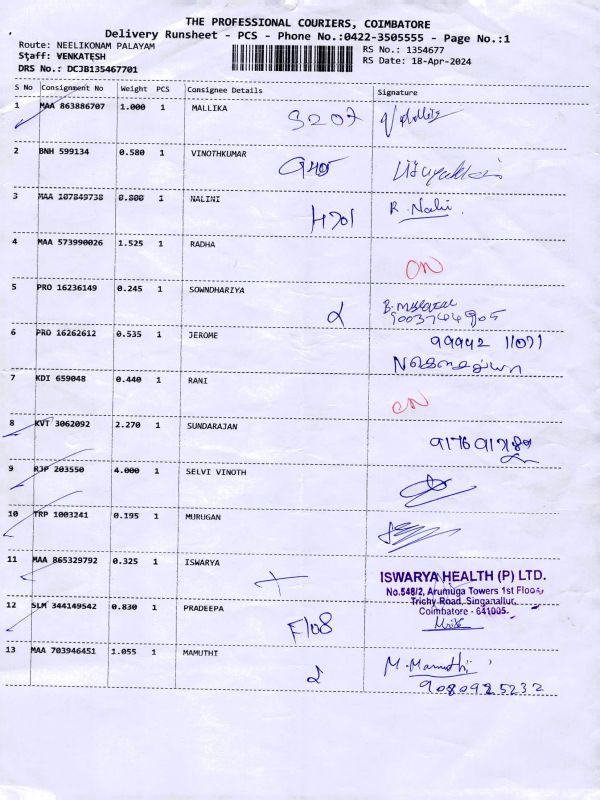 THE PROFESSIONAL COURIERS, COIMBATORE
Delivery Runsheet - PCS - Phone No.:0422-3505555 - Page No.:1
Route: NEELIKONAM PALAYAM RS No.: 1354677
Staff: VENKATESH RS Date: 18-Apr-2024
DRS No.: DCJB135467701
S No Consignment No Weight PCS Consignee Details Signature
1 MAA 863886707 1.000 1 MALLIKA
2 BNH 599134 0.580 1 VINOTHKUMAR
3 MAA 107849738 0.800 1 NALINI R. Nalini
4 MAA 573990026 1.525 1 RADHA
5 PRO 16236149 0.245 1 SOWNDHARIYA
6 PRO 16262612 0.535 1 JEROME 99942 11071
7 KDI 659048 0.440 1 RANI
8 KVT 3062092 2.270 1 SUNDARAJAN
9 RJP 203550 4.000 1 SELVI VINOTH
10 TRP 1003241 0.195 1 MURUGAN
11 MAA 865329792 0.325 1 ISWARYA
ISWARYA HEALTH (P) LTD.
No.548/2, Arumuga Towers 1st Floor,
Trichy Road, Singanallur,
Coimbatore - 641005.
12 SLM 344149542 0.830 1 PRADEEPA F108
13 MAA 703946451 1.055 1 MAMUTHI M. Mamuthi
9080925232